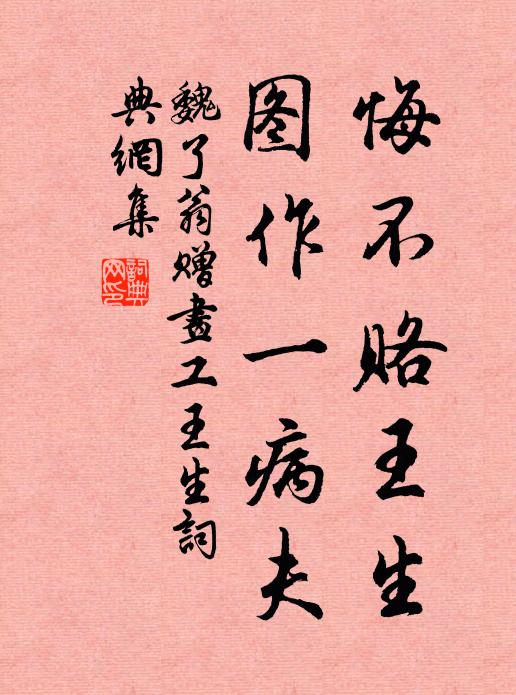 悔不赂王生
图作一病夫
魏了翁赠畫工王生詞
典網集
詞典网印